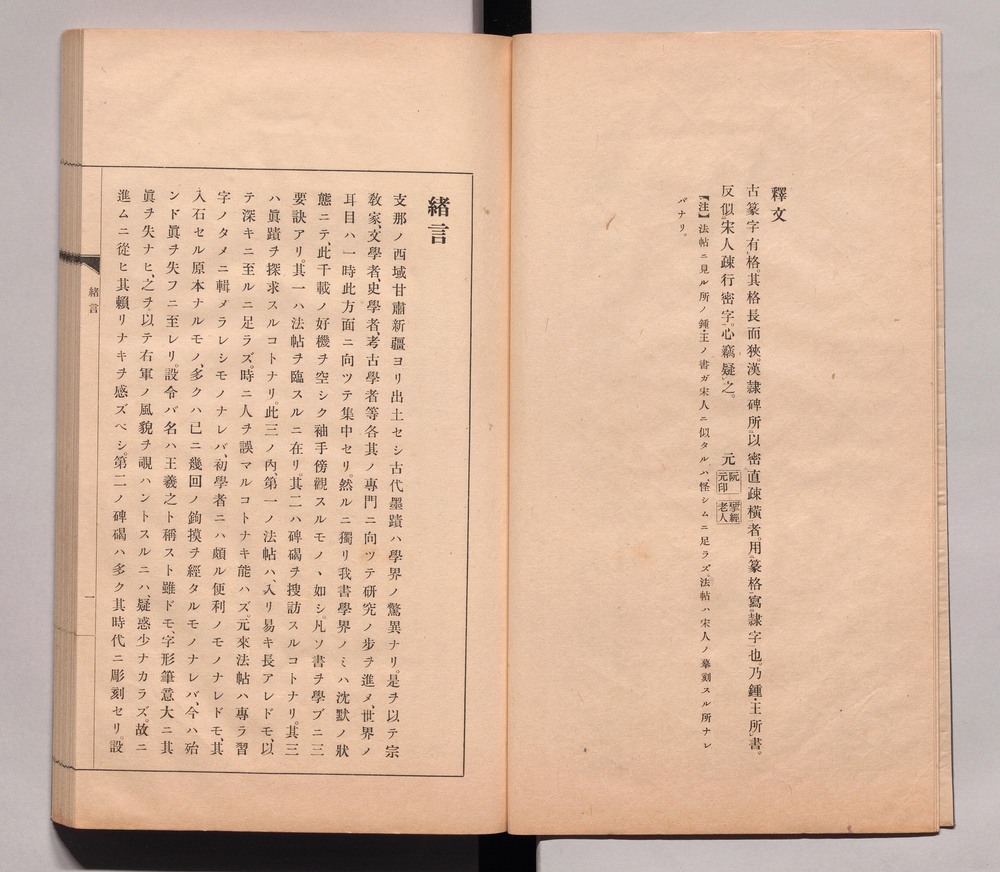 釋文
古篆字有格。其格長而狹。漢隷碑所以密直疎橫者。用篆格寫隷字也。乃鍾・王所書。
反似宋人疎行密字。心竊疑之。 元 阮元印 揅經老人
【注】法帖ニ見ル所ノ鍾・王ノ書ガ宋人ニ似タルハ、怪シムニ足ラズ。法帖ハ宋人ノ摹刻スル所ナレ
バナリ。
緒言
支那ノ西域甘肅新疆ヨリ出土セシ古代墨蹟ハ學界ノ驚異ナリ。是ヲ以テ宗
敎家、文學者、史學者、考古學者等各其ノ專門ニ向ツテ硏究ノ步ヲ進メ、世界ノ
耳目ハ一時此方面ニ向ツテ集中セリ。然ルニ獨リ我書學界ノミハ沈默ノ狀
態ニテ、此千載ノ好機ヲ空シク袖手傍觀スルモノヽ如シ。凡ソ書ヲ學ブニ三
要訣アリ。其一ハ法帖ヲ臨スルニ在リ。其二ハ碑碣ヲ搜訪スルコトナリ。其三
ハ眞蹟ヲ探求スルコトナリ。此三ノ內、第一ノ法帖ハ、入リ易キ長アレドモ、以
テ深キニ至ルニ足ラズ。時ニ人ヲ誤マルコトナキ能ハズ。元來法帖ハ專ラ習
字ノタメニ輯メラレシモノナレバ、初學者ニハ頗ル便利ノモノナレドモ、其
入石セル原本ナルモノ、多クハ已ニ幾回ノ鉤摸ヲ經タルモノナレバ、今ハ殆
ンド眞ヲ失フニ至レリ。設令バ名ハ王羲之ト稱スト雖ドモ、字形筆意大ニ其
眞ヲ失ナヒ、之ヲ以テ右軍ノ風貌ヲ覗ハントスルニハ、疑惑少ナカラズ。故ニ
進ムニ從ヒ其賴リナキヲ感ズベシ。第二ノ碑碣ハ多ク其時代ニ彫刻セリ。設
緒言
一